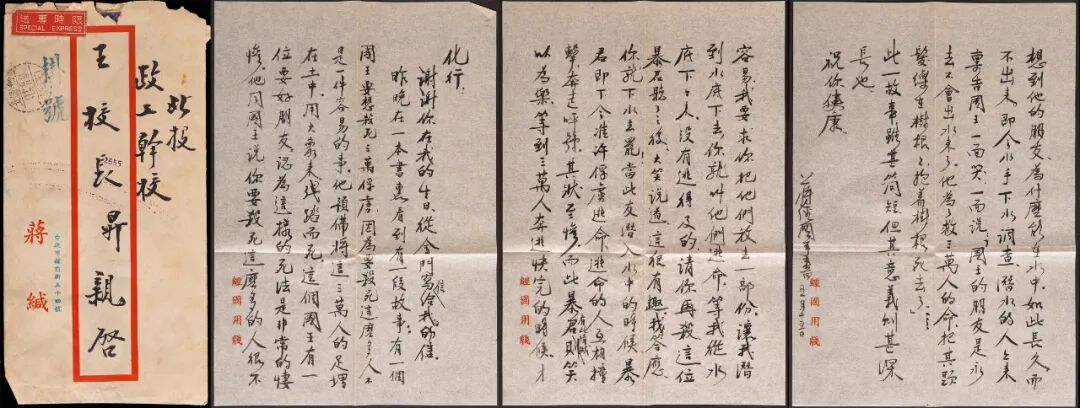 送專時限
SPECIAL EXPRESS
此投
政工幹校
王校長昇親啓
2655
掛號
蔣緘
化行：
謝謝你在我的生日，從金門寫給我的信。
昨晚在一本書裏看到有一段故事：有一個
國王要想殺死三萬俘虜，因為要殺死這麼多人不
是一件容易的事。他預備將這三萬人的足埋
在土中，用大象來踐踏而死，這個國王有一
位要好朋友認為這樣的死法是非常的悽
慘，他同國王說你要殺死這麼多的人很不
經國用牋
容易，我要求你把他們放生一部份，讓我潛
到水底下去，你就叫他們逃命，等我從水
底下上來，沒有逃得及的，請你再殺，這位
暴君聽了之後，大笑說道，這很有趣我答應
你，你就下水去罷，當此友潛入水中的時候，暴
君即下令准許俘虜逃命，逃命的人互相撞
擊，奔走呼號，其狀至慘，而此暴君則笑
以為樂，等到三萬人奔逃快完的時候，才
經國用牋
想到他的朋友，為什麼能在水中，如此長久而
不出來，即令水手下水調查，潛水的人上來
稟告國王，一面哭，一面說：國王的朋友是永
去不會出水來了，他為了救三萬人的命，把其頭
髮縛在樹根上，抱着樹根死去了……
此一故事雖甚簡短，但其意義則甚深
長也。
祝你健康
蔣經國手書
經國用牋